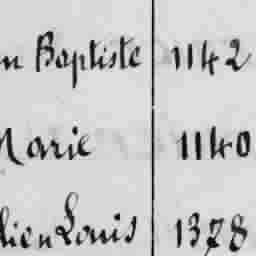 n Baptiste 1142
Marie 1140
lien Louis 1378